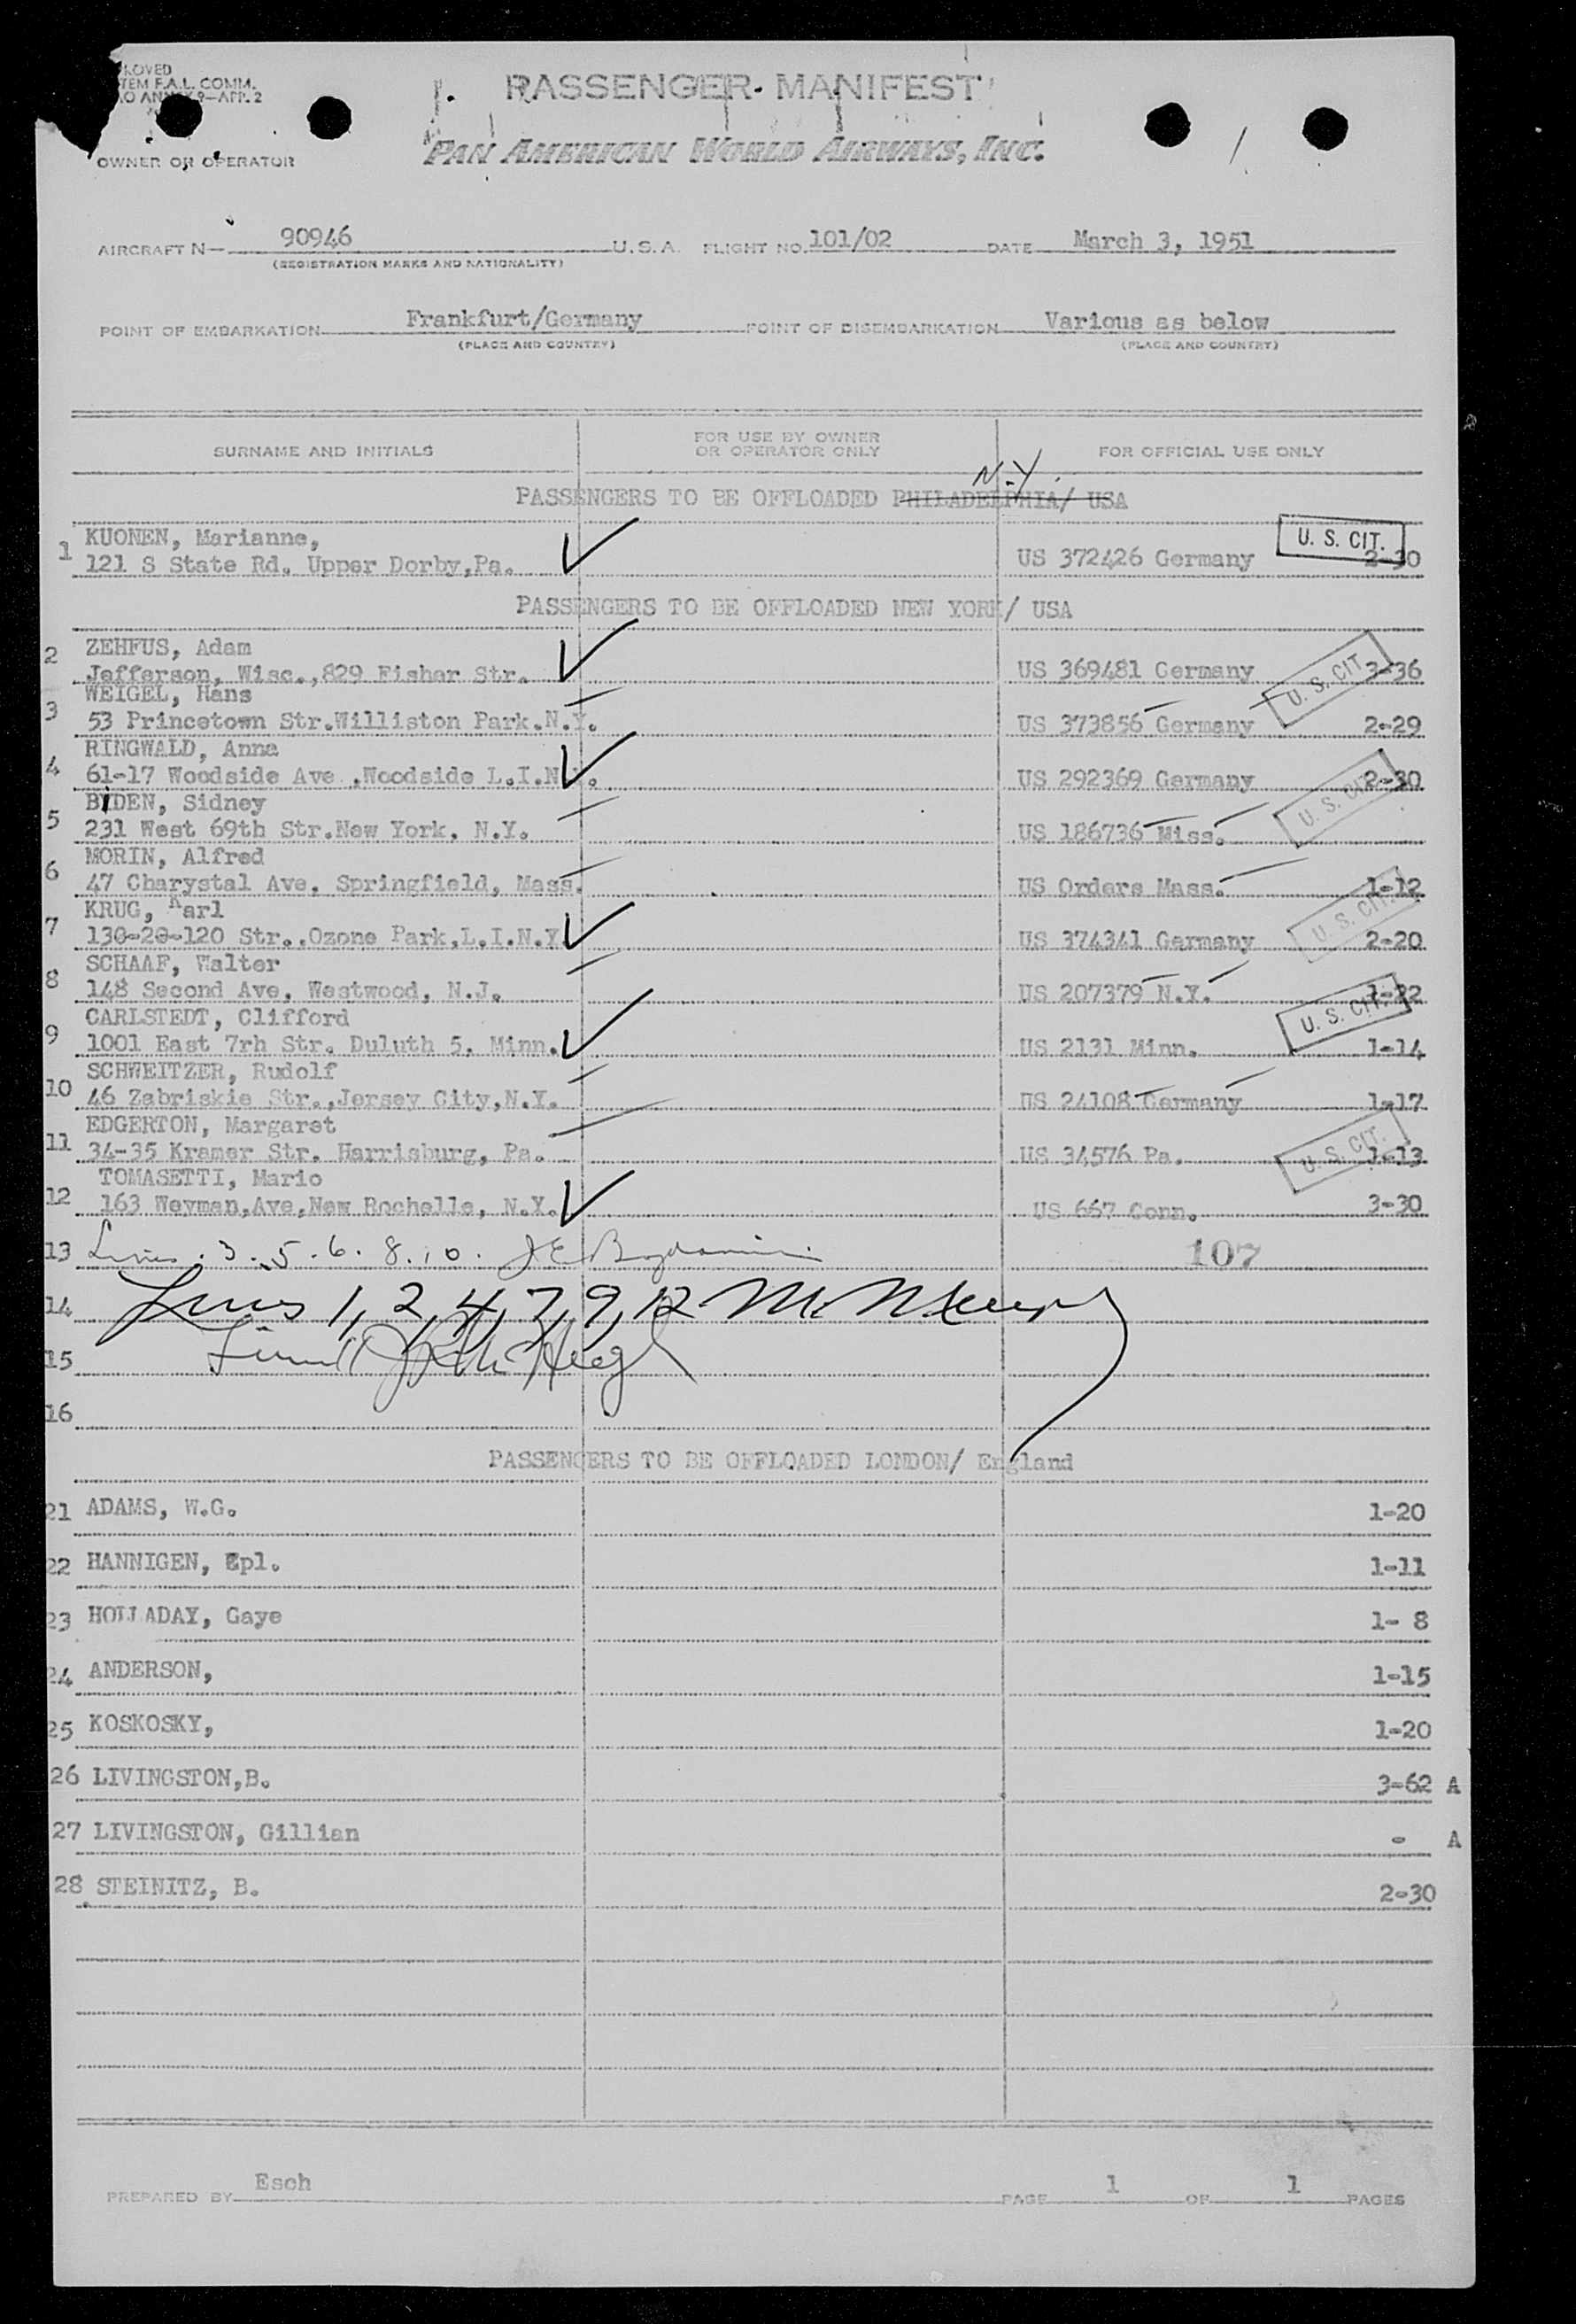 ROVED
TEM F.A.L. COMM.
O ANNEX 9—APP. 2
PASSENGER MANIFEST
OWNER OR OPERATOR
PAN AMERICAN WORLD AIRWAYS, INC.
AIRCRAFT N— 90946 U.S.A. FLIGHT NO. 101/02 DATE March 3, 1951
(REGISTRATION MARKS AND NATIONALITY)
POINT OF EMBARKATION Frankfurt/Germany POINT OF DISEMBARKATION Various as below
(PLACE AND COUNTRY) (PLACE AND COUNTRY)
SURNAME AND INITIALS FOR USE BY OWNER OR OPERATOR ONLY FOR OFFICIAL USE ONLY
N.Y.
PASSENGERS TO BE OFFLOADED PHILADELPHIA/ USA
KUONEN, Marianne, U. S. CIT.
1 121 S State Rd. Upper Dorby,Pa. US 372426 Germany 2-30
PASSENGERS TO BE OFFLOADED NEW YORK/ USA
2 ZEHFUS, Adam
Jefferson, Wisc.,829 Fisher Str. US 369481 Germany 3-36
U. S. CIT.
WEIGEL, Hans
3 53 Princetown Str.Williston Park.N.Y. US 373856 Germany 2-29
RINGWALD, Anna
4 61-17 Woodside Ave .Woodside L.I.N.Y. US 292369 Germany 2-30
U. S. CIT.
BIDEN, Sidney
5 231 West 69th Str.New York, N.Y. US 186736 Miss.
MORIN, Alfred
6 47 Charystal Ave. Springfield, Mass. US Orders Mass. 1-12
KRUG, Karl U. S. CIT.
7 130-20-120 Str..Ozone Park,L.I.N.Y. US 374341 Germany 2-20
SCHAAF, Walter
8 148 Second Ave. Westwood, N.J. US 207379 N.Y. 1-22
CARLSTEDT, Clifford U. S. CIT.
9 1001 East 7rh Str. Duluth 5, Minn. US 2131 Minn. 1-14
SCHWEITZER, Rudolf
10 46 Zabriskie Str.,Jersey City,N.Y. US 24108 Germany 1-17
EDGERTON, Margaret
11 34-35 Kramer Str. Harrisburg, Pa. US 34576 Pa. 1-13
U. S. CIT.
TOMASETTI, Mario
12 163 Weyman.Ave.New Rochelle, N.Y. US 667 Conn. 3-30
13 Lines . 3. 5. 6. 8. 10. 107
14 Lines 1, 2, 4, 7, 9, 12
15
16
PASSENGERS TO BE OFFLOADED LONDON/ England
21 ADAMS, W.G. 1-20
22 HANNIGEN, Cpl. 1-11
23 HOLLADAY, Gaye 1- 8
24 ANDERSON, 1-15
25 KOSKOSKY, 1-20
26 LIVINGSTON,B. 3-62 A
27 LIVINGSTON, Gillian - A
28 STEINITZ, B. 2-30
PREPARED BY Esch PAGE 1 OF 1 PAGES